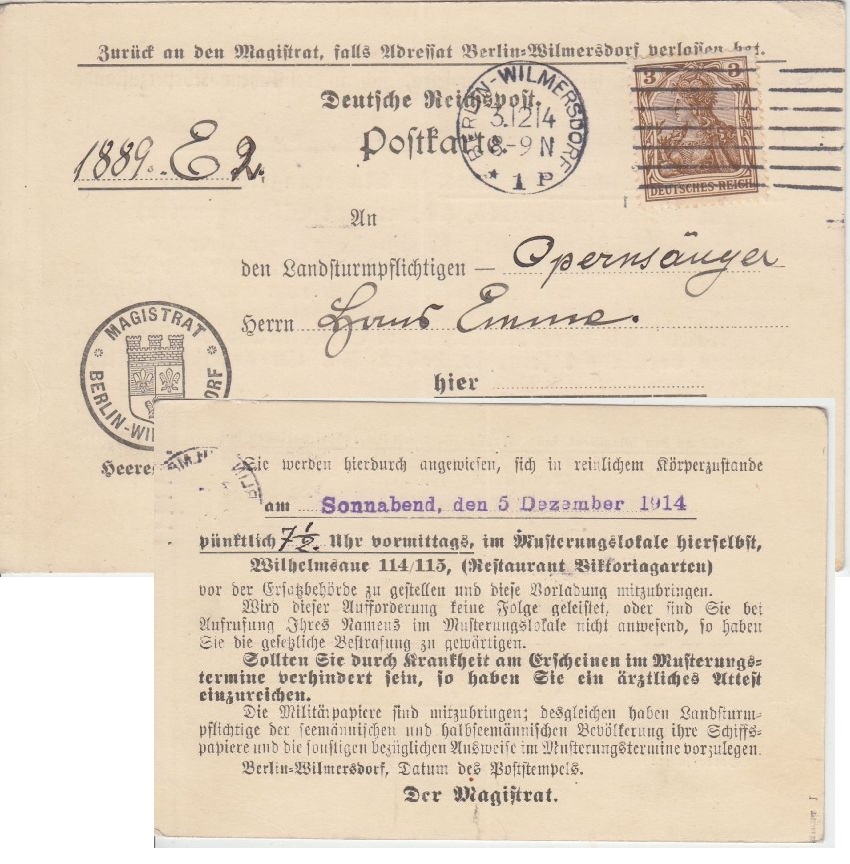 Zurück an den Magistrat, falls Adressat Berlin-Wilmersdorf verlassen hat.
Deutsche Reichspost.
Postkarte.
BERLIN-WILMERSDORF
3.12.14
8-9 N
* 1 P
3 3
DEUTSCHES REICH
1889. E 2.
An
den Landsturmpflichtigen — Opernsänger
Herrn Hans Emme.
hier
MAGISTRAT
BERLIN-WI
ORF
Heeres
Sie werden hierdurch angewiesen, sich in reinlichem Körperzustande
am Sonnabend, den 5 Dezember 1914
pünktlich 7 1/2. Uhr vormittags, im Musterungslokale hierselbst,
Wilhelmsaue 114/115, (Restaurant Viktoriagarten)
vor der Ersatzbehörde zu gestellen und diese Vorladung mitzubringen.
Wird dieser Aufforderung keine Folge geleistet, oder sind Sie bei
Aufrufung Ihres Namens im Musterungslokale nicht anwesend, so haben
Sie die gesetzliche Bestrafung zu gewärtigen.
Sollten Sie durch Krankheit am Erscheinen im Musterungs-
termine verhindert sein, so haben Sie ein ärztliches Attest
einzureichen.
Die Militärpapiere sind mitzubringen; desgleichen haben Landsturm-
pflichtige der seemännischen und halbseemännischen Bevölkerung ihre Schiffs-
papiere und die sonstigen bezüglichen Ausweise im Musterungstermine vorzulegen.
Berlin-Wilmersdorf, Datum des Poststempels.
Der Magistrat.